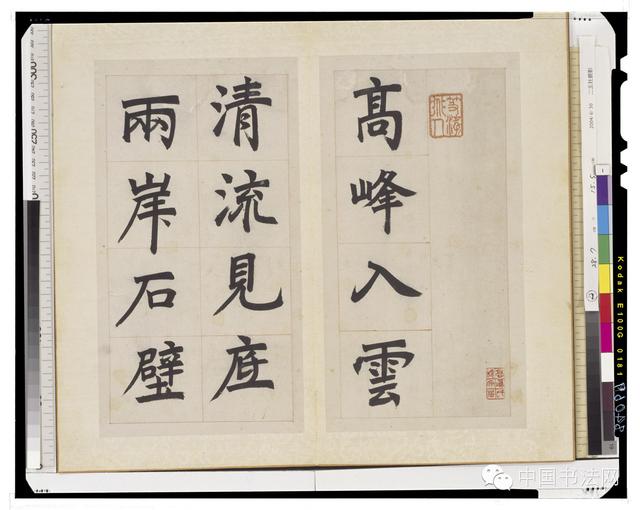 高峰入雲
清流見底
兩岸石壁
Kodak E100G 0181
中国书法网